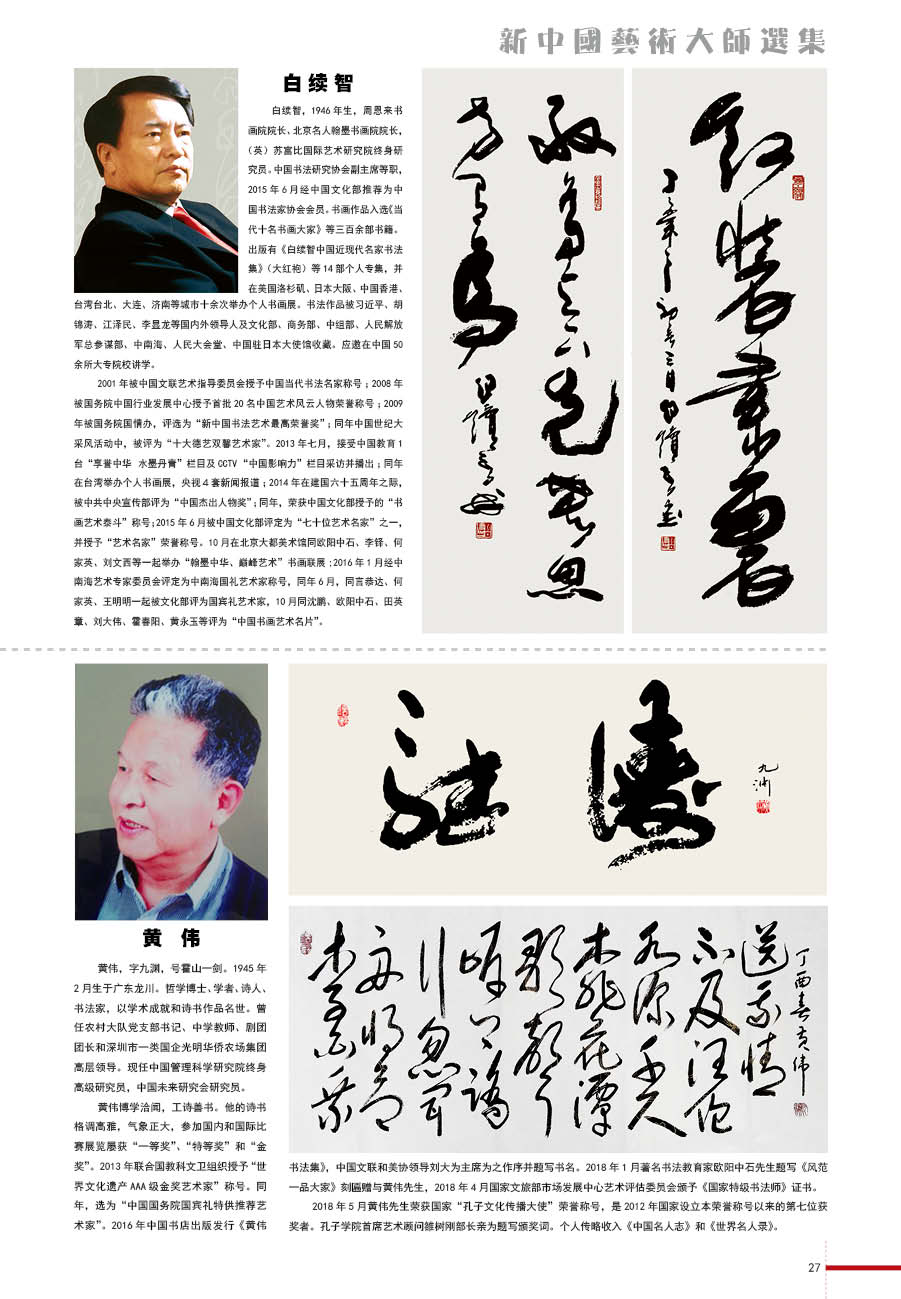 新中國藝術大師選集
白续智
白续智，1946 年生，周恩来书
画院院长、北京名人翰墨书画院院长，
（英）苏富比国际艺术研究院终身研
究员。中国书法研究协会副主席等职，
2015 年 6 月经中国文化部推荐为中
国书法家协会会员。书画作品入选《当
代十名书画大家》等三百余部书籍。
出版有《白续智中国近现代名家书法
集》（大红袍）等 14 部个人专集，并
在美国洛杉矶、日本大阪、中国香港、
台湾台北、大连、济南等城市十余次举办个人书画展。书法作品被习近平、胡
锦涛、江泽民、李显龙等国内外领导人及文化部、商务部、中组部、人民解放
军总参谋部、中南海、人民大会堂、中国驻日本大使馆收藏。应邀在中国 50
余所大专院校讲学。
2001 年被中国文联艺术指导委员会授予中国当代书法名家称号；2008 年
被国务院中国行业发展中心授予首批 20 名中国艺术风云人物荣誉称号；2009
年被国务院国情办，评选为“新中国书法艺术最高荣誉奖”；同年中国世纪大
采风活动中，被评为“十大德艺双馨艺术家”。2013 年七月，接受中国教育 1
台“享誉中华 水墨丹青”栏目及 CCTV “中国影响力”栏目采访并播出；同年
在台湾举办个人书画展，央视 4 套新闻报道；2014 年在建国六十五周年之际，
被中共中央宣传部评为“中国杰出人物奖”；同年，荣获中国文化部授予的“书
画艺术泰斗”称号；2015 年 6 月被中国文化部评定为“七十位艺术名家”之一，
并授予“艺术名家”荣誉称号。10 月在北京大都美术馆同欧阳中石、李铎、何
家英、刘文西等一起举办“翰墨中华、巅峰艺术”书画联展；2016 年 1 月经中
南海艺术专家委员会评定为中南海国礼艺术家称号，同年 6 月，同言恭达、何
家英、王明明一起被文化部评为国宾礼艺术家，10 月同沈鹏、欧阳中石、田英
章、刘大伟、霍春阳、黄永玉等评为“中国书画艺术名片”。
九渊
黄 伟
黄伟，字九渊，号霍山一剑。1945 年
2 月生于广东龙川。哲学博士、学者、诗人、
书法家，以学术成就和诗书作品名世。曾
任农村大队党支部书记、中学教师、剧团
团长和深圳市一类国企光明华侨农场集团
高层领导。现任中国管理科学研究院终身
高级研究员，中国未来研究会研究员。
黄伟博学洽闻，工诗善书。他的诗书
格调高雅，气象正大，参加国内和国际比
赛展览屡获“一等奖”、“特等奖”和“金
奖”。2013 年联合国教科文卫组织授予“世
界文化遗产 AAA 级金奖艺术家”称号。同
年，选为“中国国务院国宾礼特供推荐艺
术家”。2016 年中国书店出版发行《黄伟
丁酉春黄伟
送我情
不及汪伦
书法集》，中国文联和美协领导刘大为主席为之作序并题写书名。2018 年 1 月著名书法教育家欧阳中石先生题写《风范
一品大家》刻匾赠与黄伟先生，2018 年 4 月国家文旅部市场发展中心艺术评估委员会颁予《国家特级书法师》证书。
2018 年 5 月黄伟先生荣获国家“孔子文化传播大使”荣誉称号，是 2012 年国家设立本荣誉称号以来的第七位获
奖者。孔子学院首席艺术顾问雒树刚部长亲为题写颁奖词。个人传略收入《中国名人志》和《世界名人录》。
27